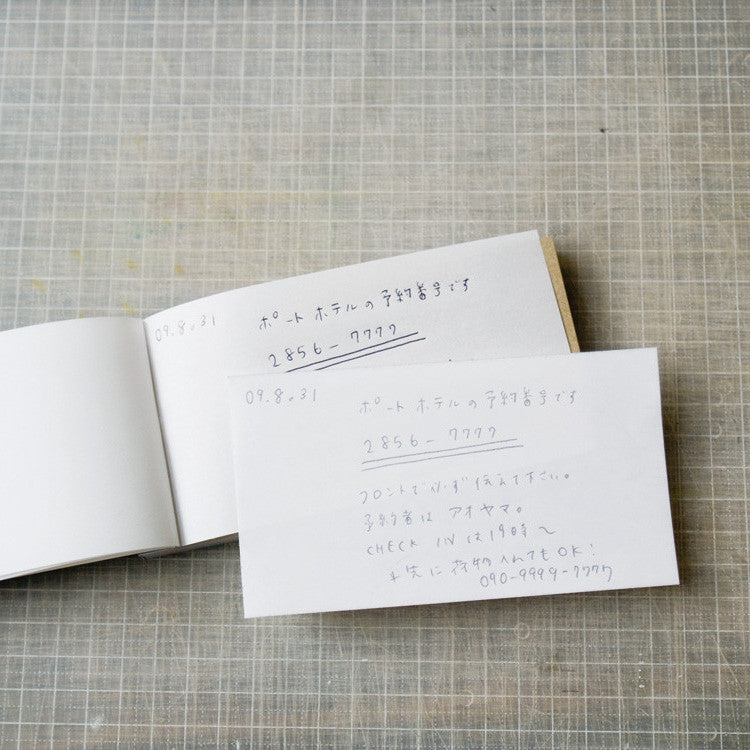 09.8.31
ポートホテルの予約番号です
2856-7777
09.8.31
ポートホテルの予約番号です
2856-7777
フロントで必ず伝えて下さい。
予約者は アオヤマ。
CHECK INは19時〜
*先に荷物入れてもOK!
090-9999-7777